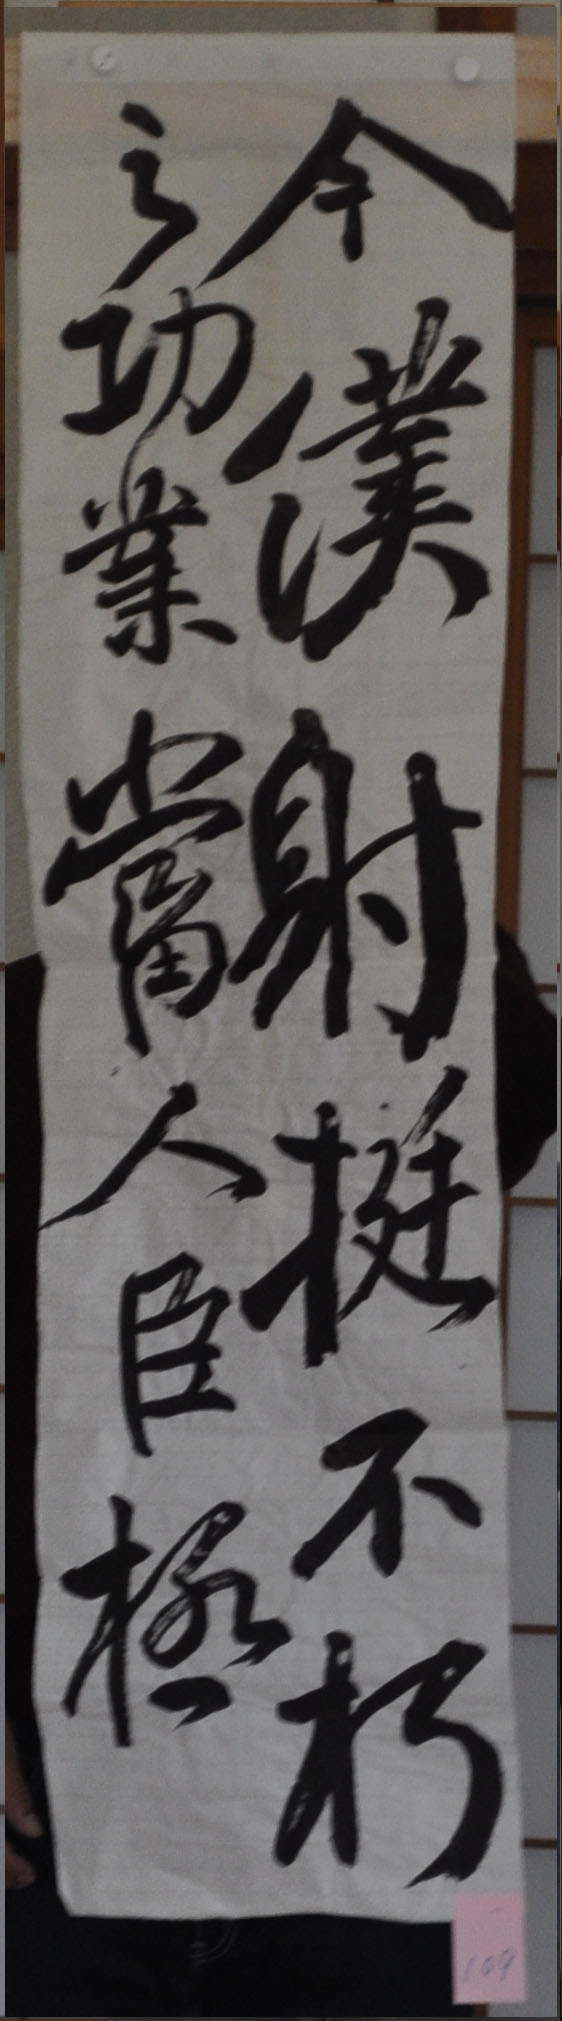 今僕射挺不朽
之功業當人臣極
109